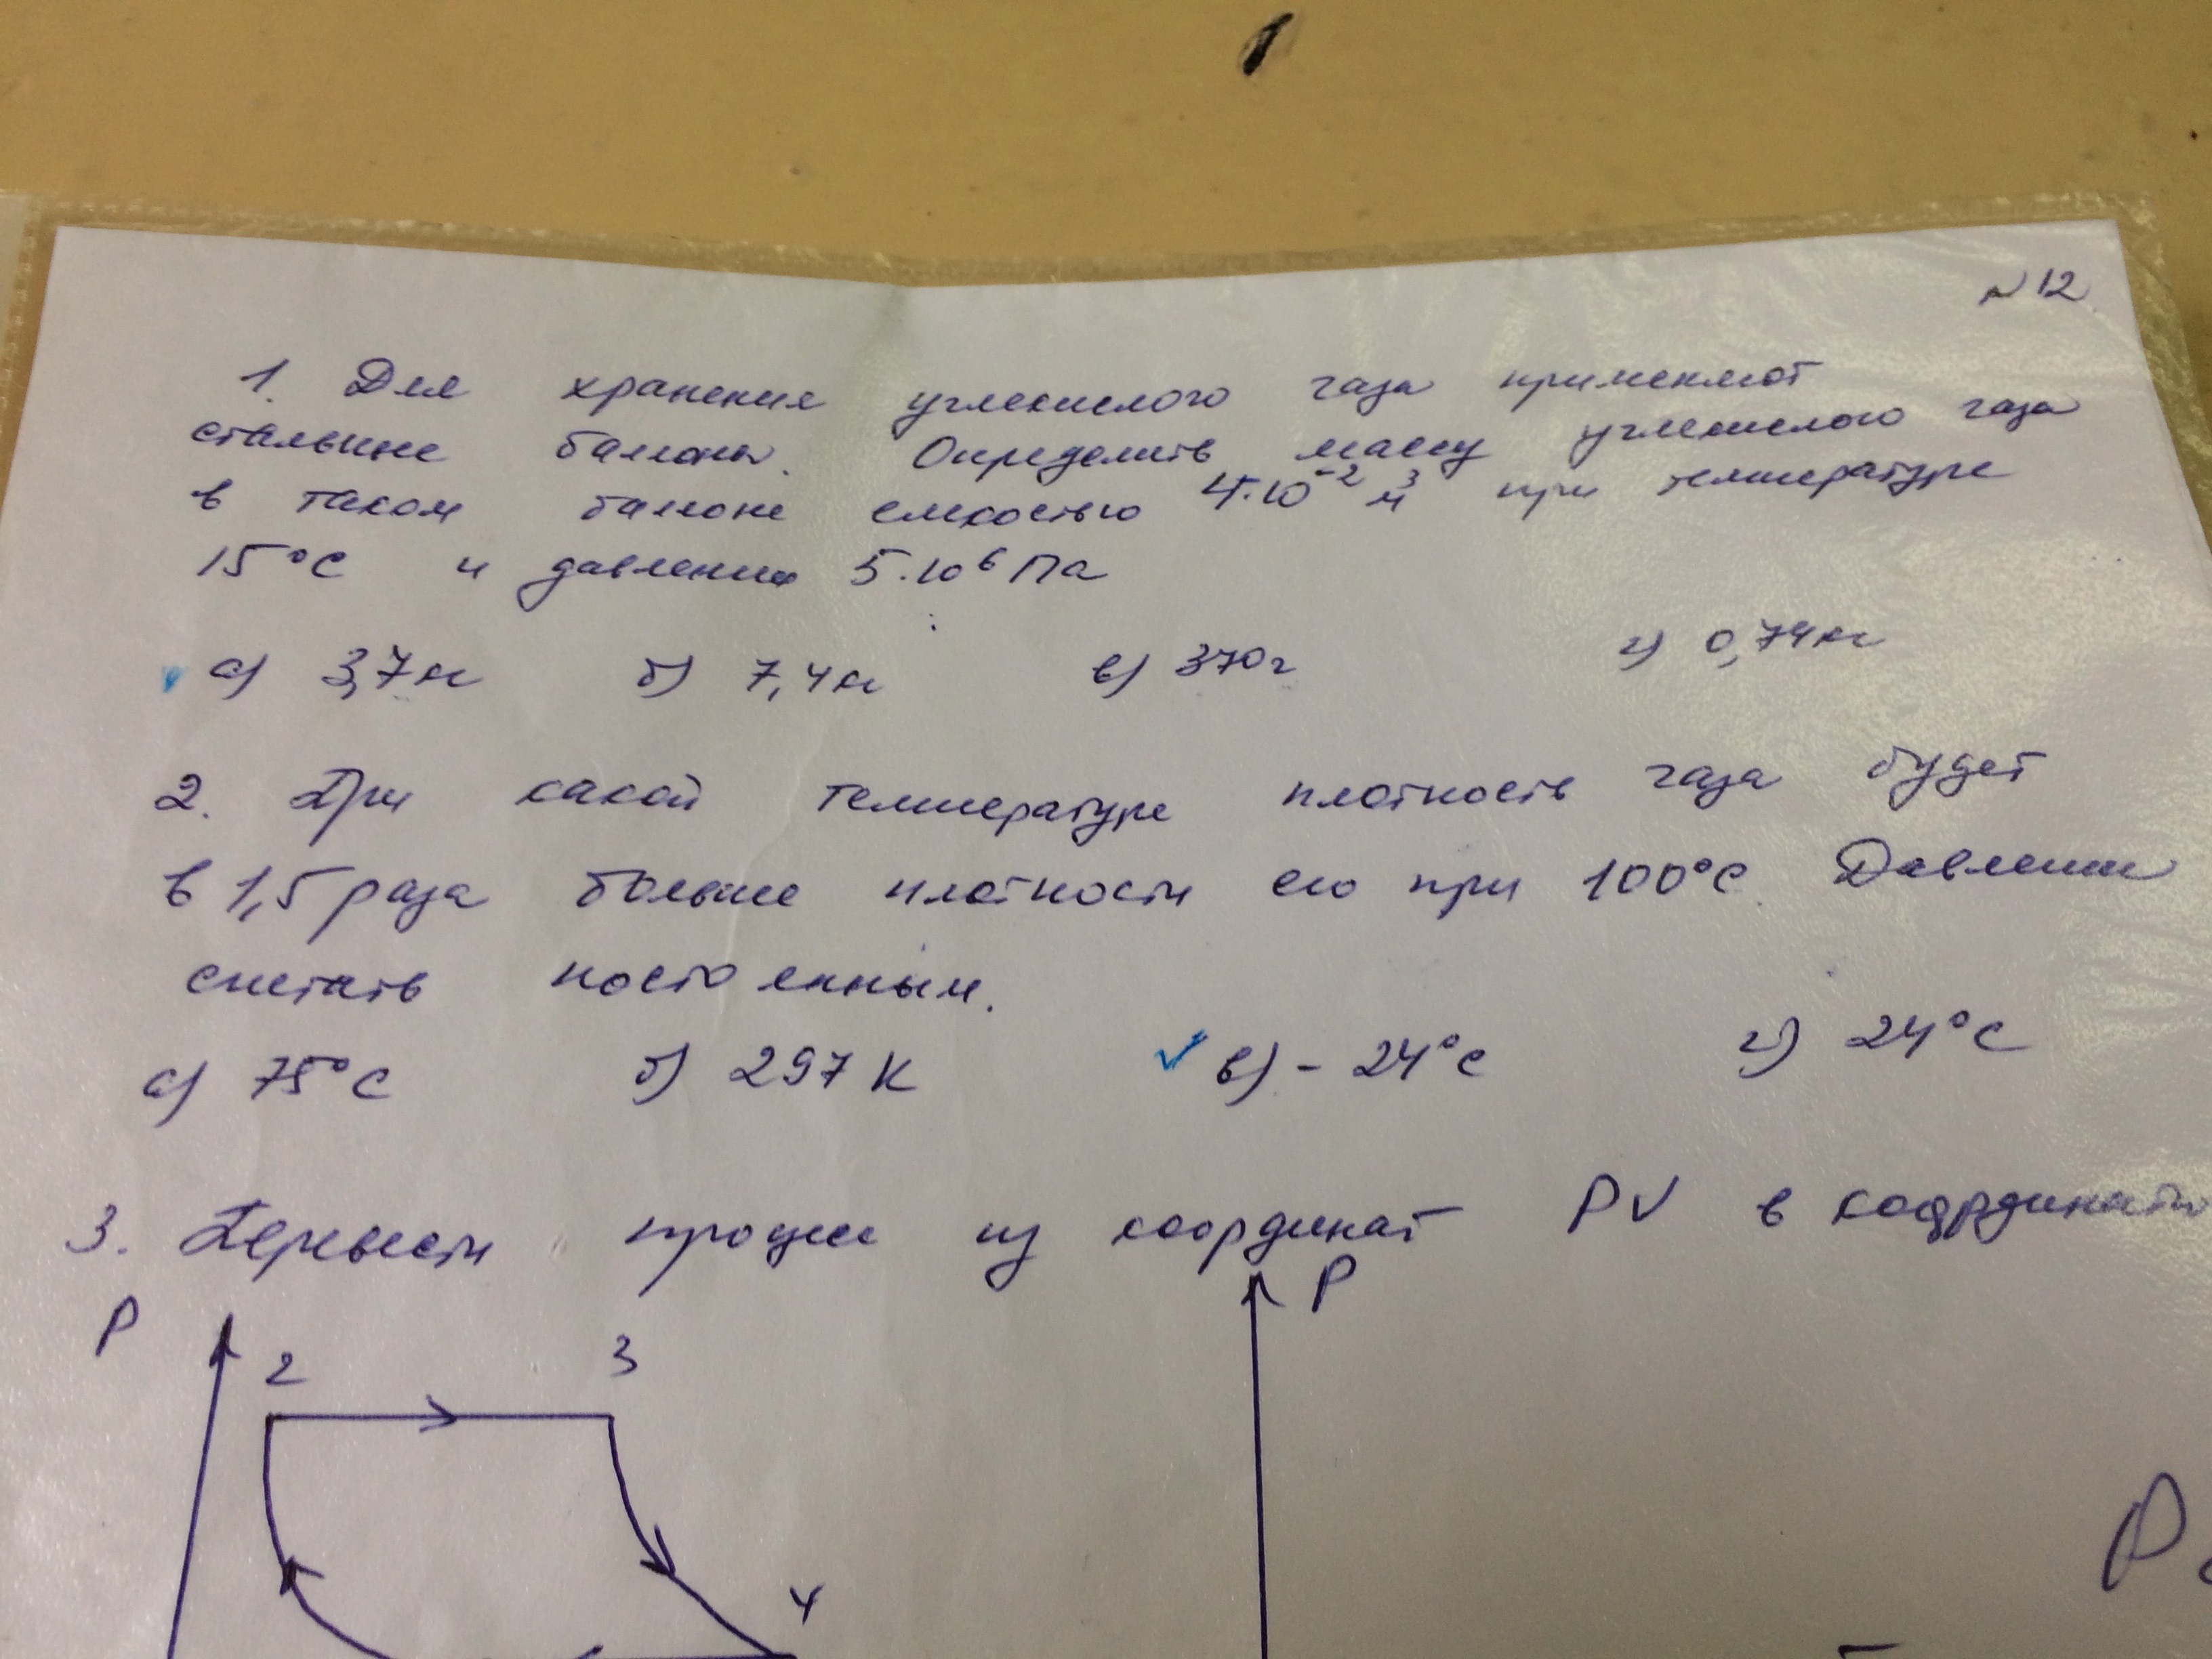 №12
1. Для хранения углекислого газа применяют
стальные балоны. Определить массу углекислого газа
в таком балоне емкостью 4·10⁻² м³ при температуре
15°С и давлении 5·10⁶ Па
а) 3,7кг б) 7,4кг в) 370г г) 0,74кг
2. При какой температуре плотность газа будет
в 1,5 раза больше плотности его при 100°С. Давление
считать постоянным.
а) 75°С б) 297 К в) - 24°С г) 24°С
3. Перевести процесс из координат PV в координаты
P P
2 3
4
P